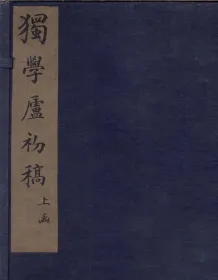 獨學廬初稿
上函